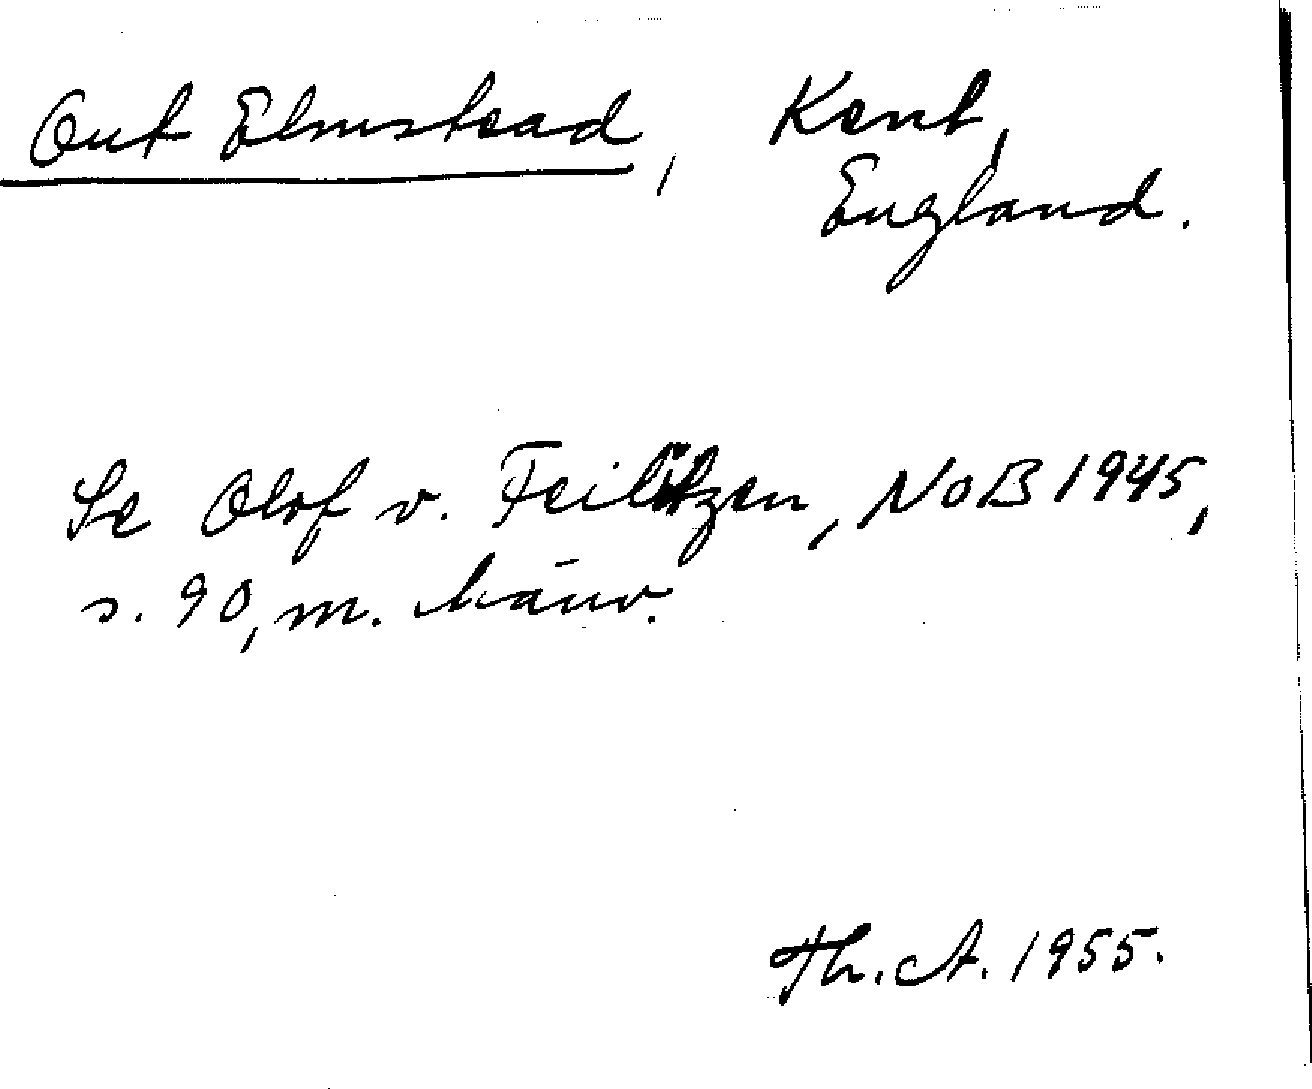 Out Elmstead, Kent,
England.
Se Olof v. Feilitzen, NoB 1945,
s. 90, m. hänv.
Th. A. 1955.